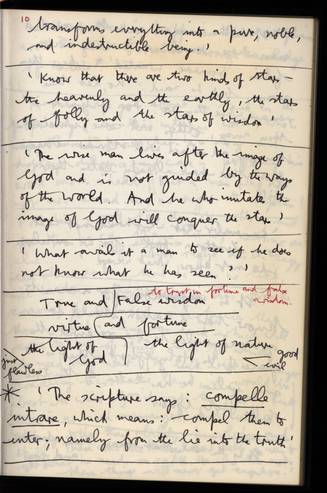 10
transforms everything into a pure, noble,
and indestructible being.'
'Know that there are two kinds of stars –
the heavenly and the earthly, the stars
of folly and the stars of wisdom'
'The wise man lives after the image of
God and is not guided by the ways
of the world. And he who imitates the
image of God will conquer the stars'
'What avails it a man to see if he does
not know what he has seen?'
to trust in fortune and false
wisdom.
True and False wisdom
virtue and fortune
the light of the light of nature
God
good
evil
just
fearless
* 'The scripture says: compelle
intrare, which means: compel them to
enter; namely from the lie into the truth'